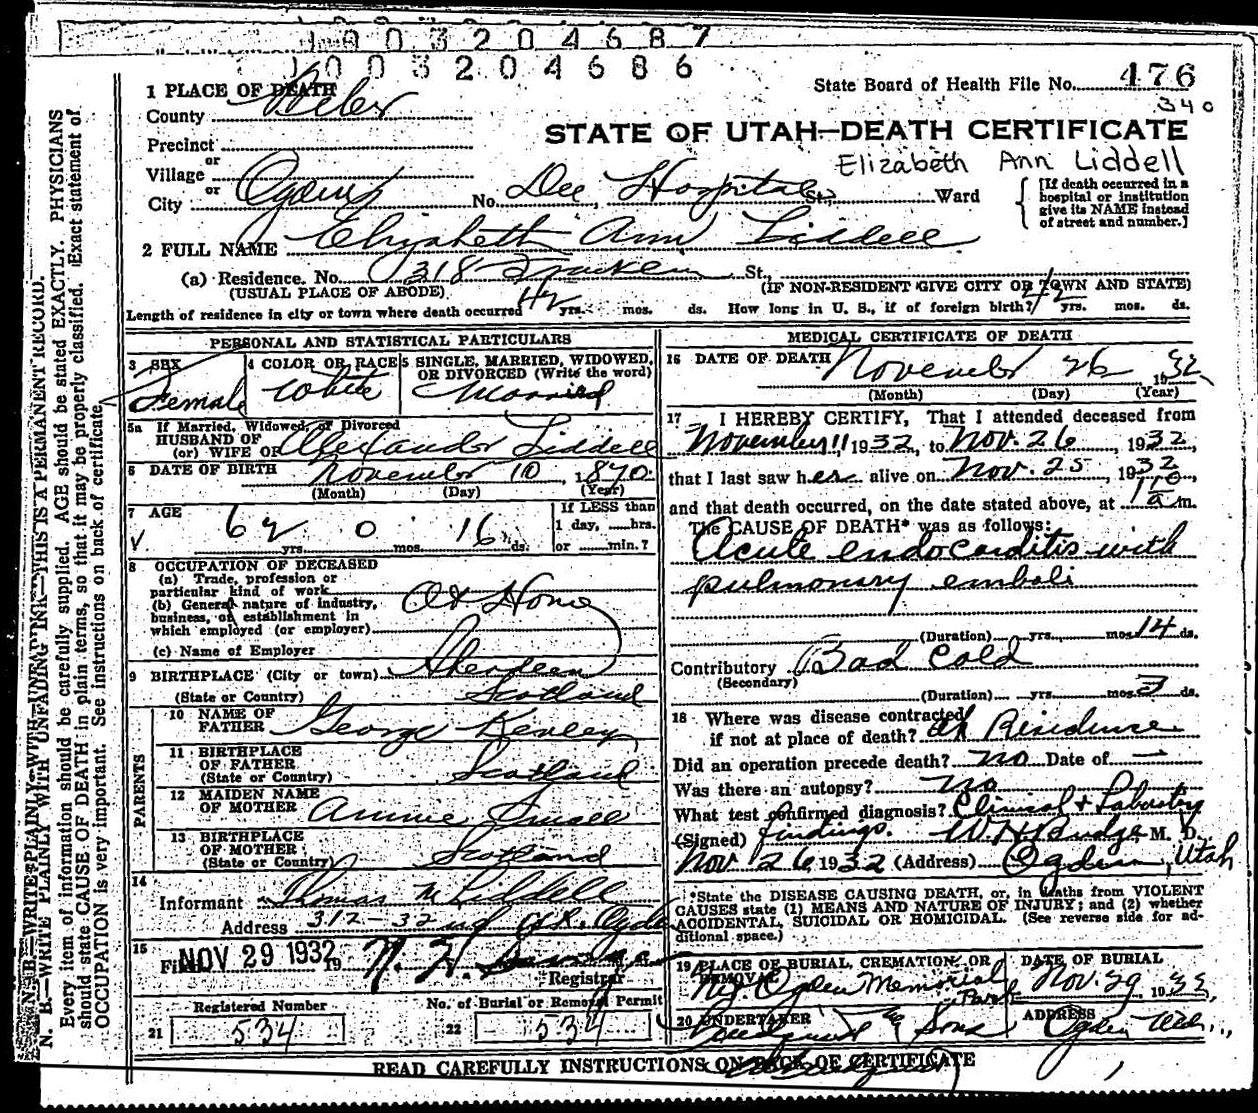 1003204687
1003204686
State Board of Health File No. 476
340
1 PLACE OF DEATH
County Weber
STATE OF UTAH—DEATH CERTIFICATE
Precinct
Elizabeth Ann Liddell
or
Village
or
City Ogden No. Dee Hospital St., Ward
[If death occurred in a hospital or institution give its NAME instead of street and number.]
2 FULL NAME Elizabeth Ann Liddell
(a) Residence. No. 318 St.,
(USUAL PLACE OF ABODE) (IF NON-RESIDENT GIVE CITY OR TOWN AND STATE)
Length of residence in city or town where death occurred 42 yrs. mos. ds. How long in U. S., if of foreign birth? 42 yrs. mos. ds.
PERSONAL AND STATISTICAL PARTICULARS
3 SEX Female
4 COLOR OR RACE White
5 SINGLE, MARRIED, WIDOWED, OR DIVORCED (Write the word) Married
5a If Married, Widowed, or Divorced
HUSBAND OF
(or) WIFE OF Alexander Liddell
6 DATE OF BIRTH November 10, 1870
(Month) (Day) (Year)
7 AGE 62 yrs. 0 mos. 16 ds.
If LESS than 1 day, hrs. or min.?
8 OCCUPATION OF DECEASED
(a) Trade, profession or
particular kind of work
(b) General nature of industry,
business, or establishment in
which employed (or employer)
At Home
(c) Name of Employer
9 BIRTHPLACE (City or town) Aberdeen
(State or Country) Scotland
PARENTS
10 NAME OF FATHER George
11 BIRTHPLACE OF FATHER (State or Country) Scotland
12 MAIDEN NAME OF MOTHER Annie Small
13 BIRTHPLACE OF MOTHER (State or Country) Scotland
14
Informant Thomas M Liddell
Address 312-32nd St. Ogden
15
Filed NOV 29 1932 19
Registrar
Registered Number
21 534
No. of Burial or Removal Permit
22 534
MEDICAL CERTIFICATE OF DEATH
16 DATE OF DEATH November 26 1932
(Month) (Day) (Year)
17 I HEREBY CERTIFY, That I attended deceased from
November 11 1932, to Nov. 26, 1932,
that I last saw her alive on Nov. 25, 1932
and that death occurred, on the date stated above, at 110 a m.
The CAUSE OF DEATH* was as follows:
Acute endocarditis with
pulmonary emboli
(Duration) yrs. mos. 14 ds.
Contributory Bad Cold
(Secondary)
(Duration) yrs. mos. 3 ds.
18 Where was disease contracted
if not at place of death? at Residence
Did an operation precede death? no Date of —
Was there an autopsy? no
What test confirmed diagnosis? Clinical + Laboratory
(Signed) findings. W H Budge M. D.
Nov 26 1932 (Address) Ogden, Utah
*State the DISEASE CAUSING DEATH, or, in deaths from VIOLENT
CAUSES state (1) MEANS AND NATURE OF INJURY; and (2) whether
ACCIDENTAL, SUICIDAL OR HOMICIDAL. (See reverse side for ad-
ditional space.)
19 PLACE OF BURIAL, CREMATION OR REMOVAL Ogden Memorial Park
DATE OF BURIAL Nov. 29 1932,
20 UNDERTAKER & Sons
ADDRESS Ogden
READ CAREFULLY INSTRUCTIONS ON BACK OF CERTIFICATE
N. B.—WRITE PLAINLY WITH UNFADING INK—THIS IS A PERMANENT RECORD.
Every item of information should be carefully supplied. AGE should be stated EXACTLY. PHYSICIANS
should state CAUSE OF DEATH in plain terms, so that it may be properly classified. Exact statement of
OCCUPATION is very important. See instructions on back of certificate